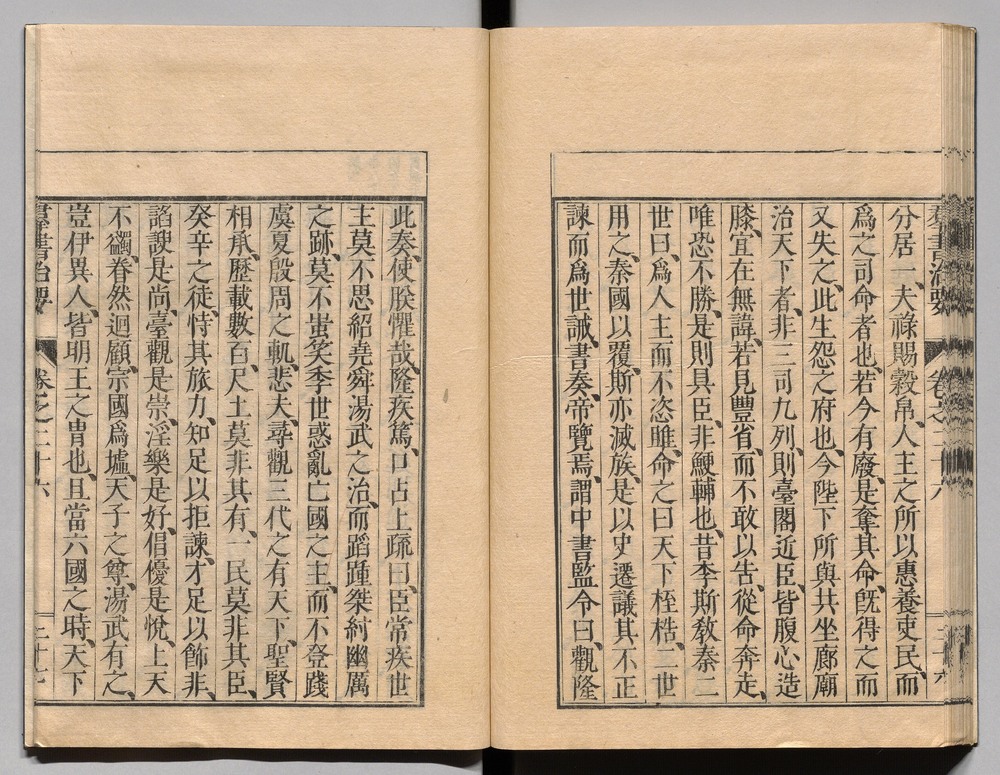 分居一、夫祿賜穀帛、人主之所以惠養吏民、而
爲之司命者也、若今有廢、是奪其命、既得之而
又失之、此生怨之府也、今陛下所與共坐廊廟
治天下者、非三司九列、則臺閣近臣、皆腹心造
膝、宜在無諱、若見豐省、而不敢以吿、從命奔走、
唯恐不勝、是則具臣、非鯁輔也、昔李斯敎秦二
世曰、爲人主而不恣睢、命之曰天下桎梏、二世
用之、秦國以覆、斯亦滅族、是以史遷議其不正
諫而爲世誡、書奏、帝覽焉、謂中書監令曰、觀隆
此奏、使朕懼哉、隆疾篤、口占上疏曰、臣常疾世
主莫不思紹堯舜湯武之治、而蹈踵桀紂幽厲
之跡、莫不蚩笑季世惑亂亡國之主、而不登踐
虞夏殷周之軌、悲夫、尋觀三代之有天下、聖賢
相承、歷載數百、尺土莫非其有、一民莫非其臣、
癸辛之徒、恃其旅力、知足以拒諫、才足以飾非、
諂諛是尚、臺觀是崇、淫樂是好、倡優是悅、上天
不蠲、眷然迴顧、宗國爲墟、天子之尊、湯武有之、
豈伊異人、皆明王之冑也、且當六國之時、天下
羣書治要 卷之二十六 二十七